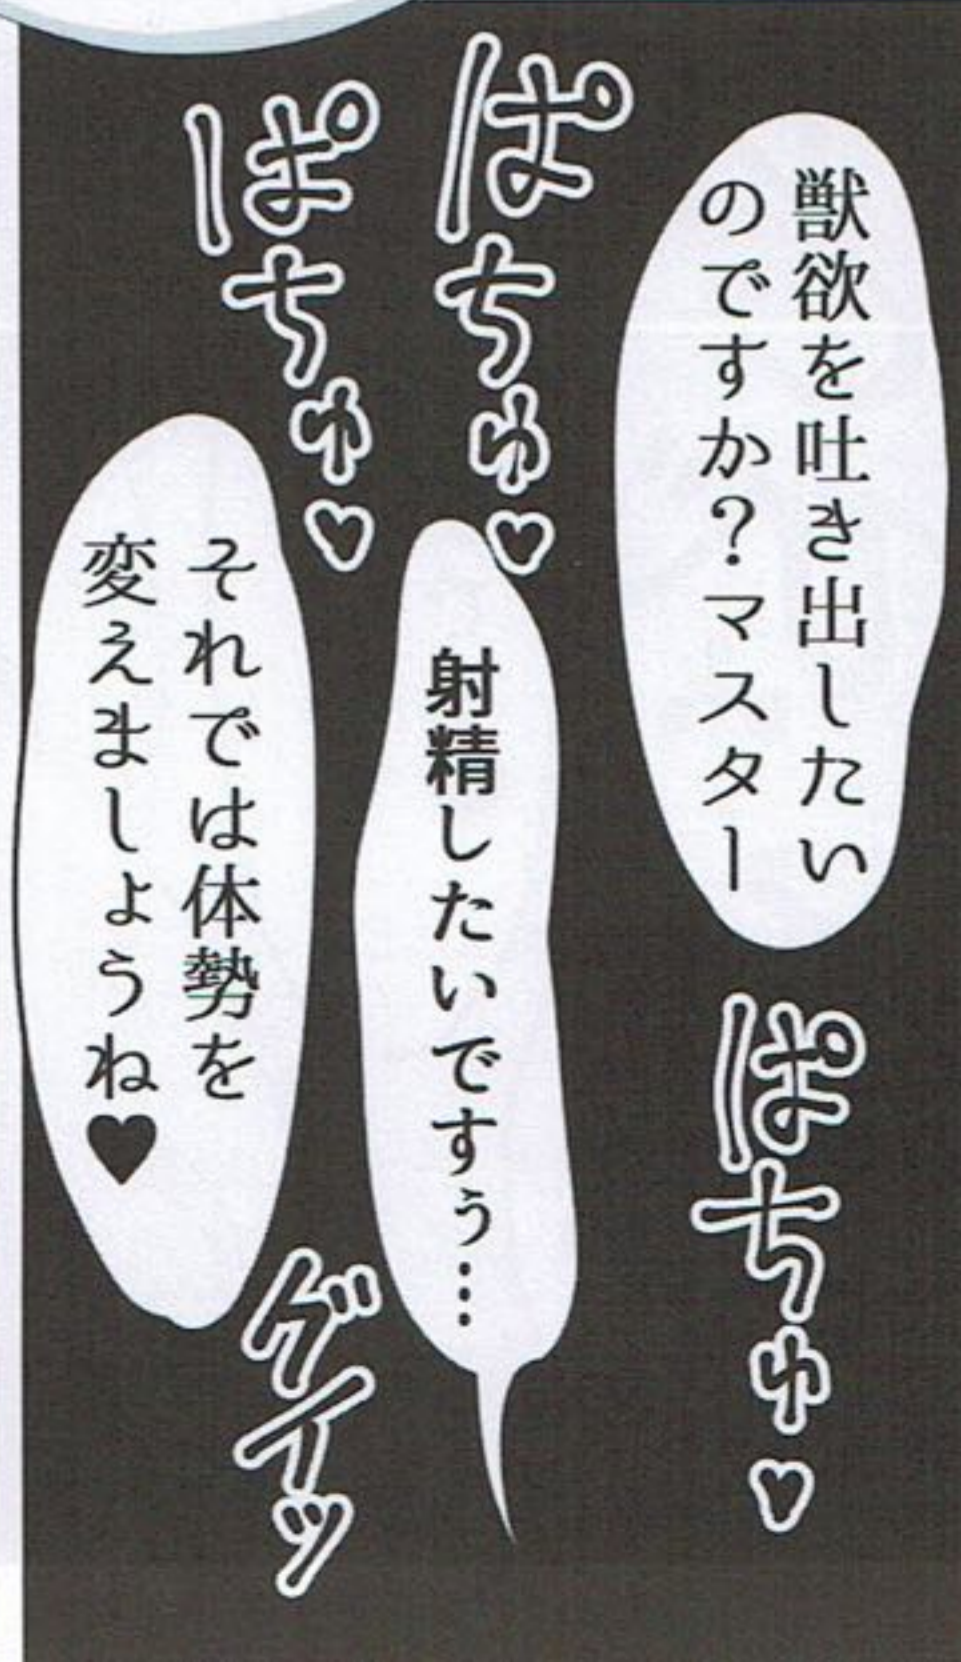 獣欲を吐き出したい
のですか?マスター
ぱちゅ♡
ぱちゅ♡
射精したいですぅ…
ぱちゅ♡
それでは体勢を
変えましょうね♥
グイッ